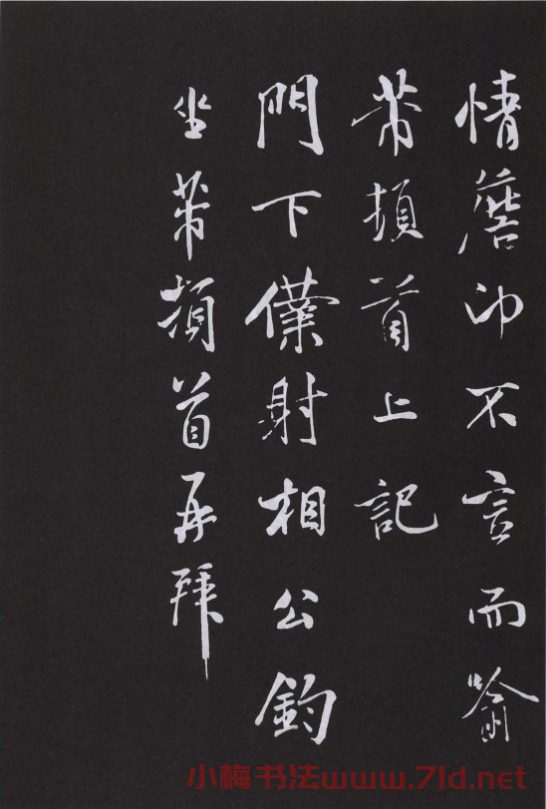 情詹卬不言而喻
芾頓首上記
門下僕射相公鈞
坐芾頓首再拜
小梅书法www.7ld.net